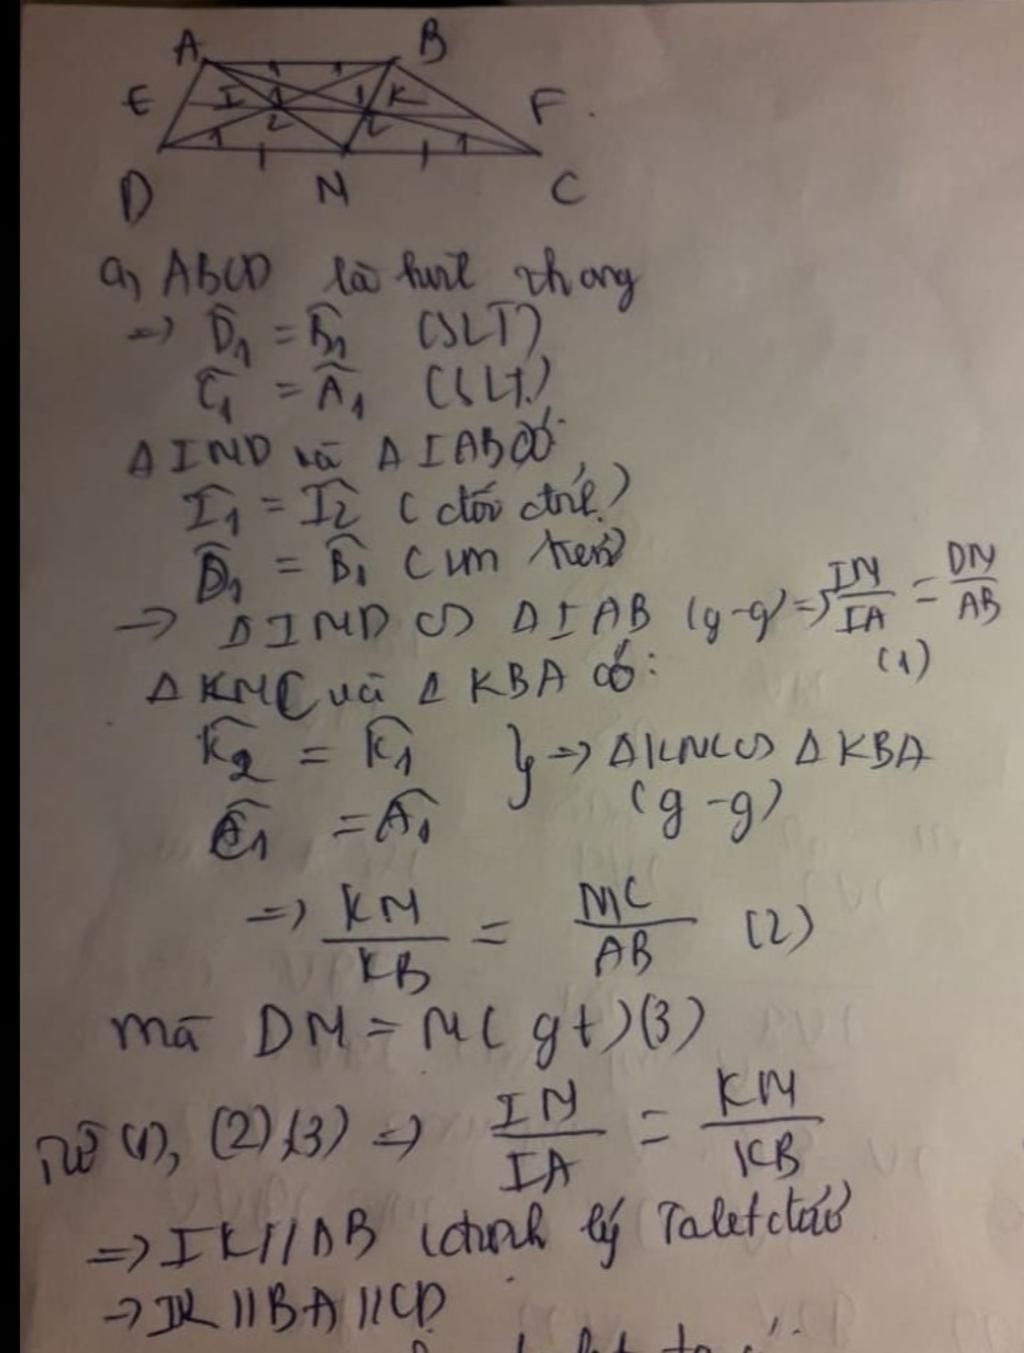 A B
E I 1 1 K F
2 2
1 1
D M C
a, ABCD là hình thang
=> D̂1 = B̂1 (SLT)
Ĉ1 = Â1 (SLT)
Δ IMD và Δ IAB có:
Î1 = Î2 (đối đỉnh)
D̂1 = B̂1 (cm trên)
=> Δ IMD ∽ Δ IAB (g-g) => IM/IA = DM/AB
(1)
Δ KMC và Δ KBA có:
K̂2 = K̂1 } => Δ KMC ∽ Δ KBA
Ĉ1 = Â1 (g-g)
=> KM/KB = MC/AB (2)
mà DM = MC (gt) (3)
Từ (1), (2), (3) => IM/IA = KM/KB
=> IK // AB (định lý Talet đảo
=> IK // BA // CD